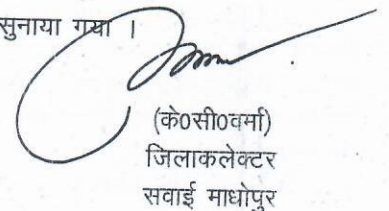 सुनाया गया ।
(के०सी०वर्मा)
जिलाकलेक्टर
सवाई माधोपुर